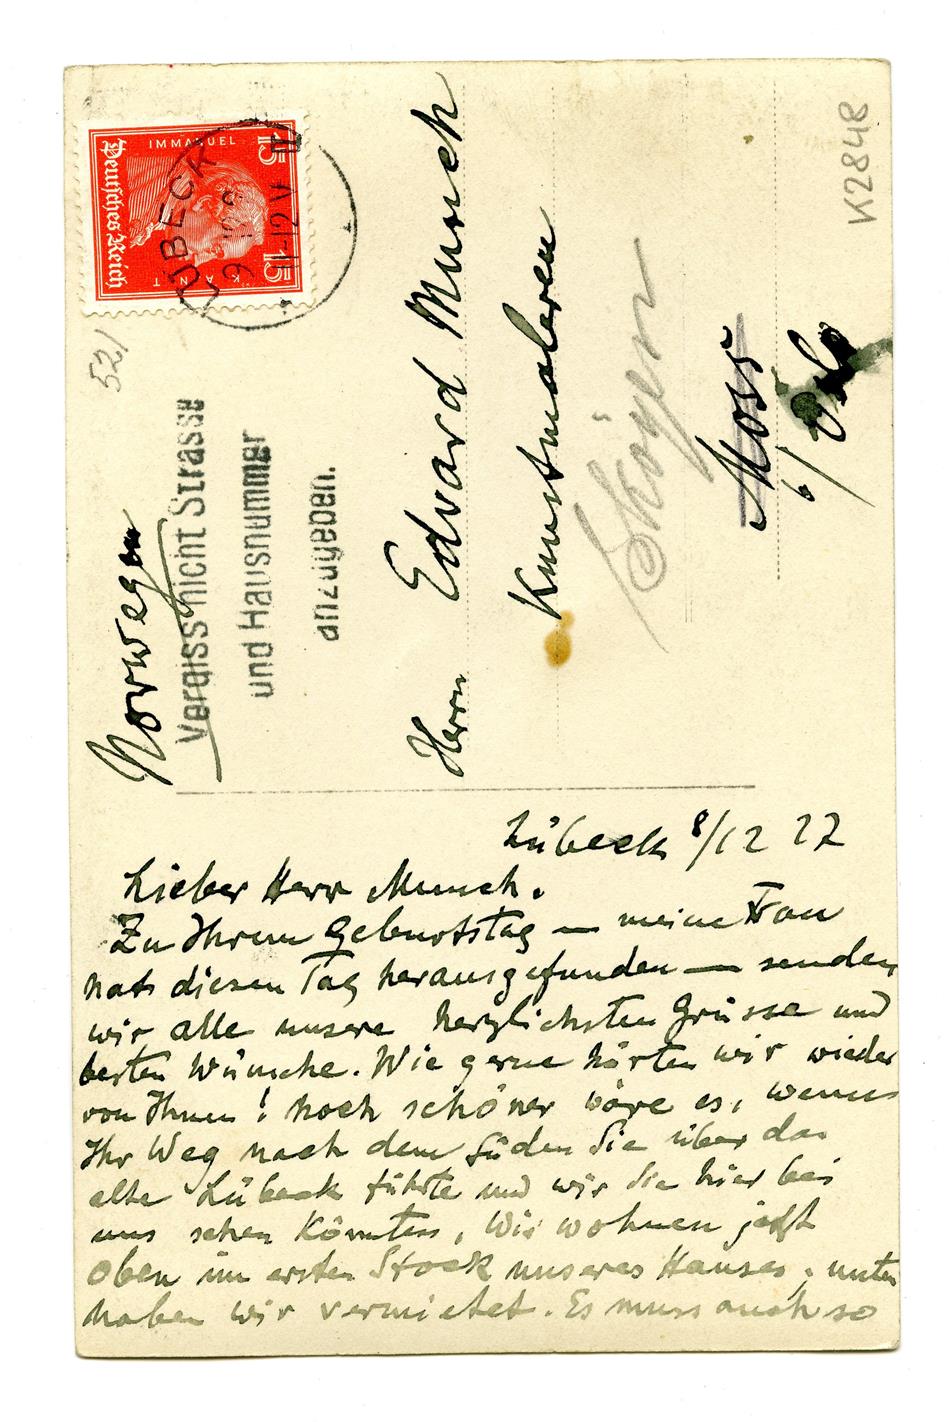 K2848
IMMANUEL
KANT
15 15
Deutsches Reich
LÜBECK
521
Norwegen
Vergiss nicht Strasse
und Hausnummer
anzugeben.
Herrn Edvard Munch
Kunstmaleren
Skøyen
Moss
b/ Oslo
Lübeck 8/12 27
Lieber Herr Munch.
Zu Ihrem Geburtstag — meine Frau
hat diesen Tag herausgefunden — senden
wir alle unsere herzlichsten Grüsse und
besten Wünsche. Wie gerne hörten wir wieder
von Ihnen! Noch schöner wäre es, wenn
Ihr Weg nach dem Süden Sie über das
alte Lübeck führte und wir Sie hier bei
uns sehen könnten. Wir wohnen jetzt
oben im ersten Stock unseres Hauses, unten
haben wir vermietet. Es muss auch so